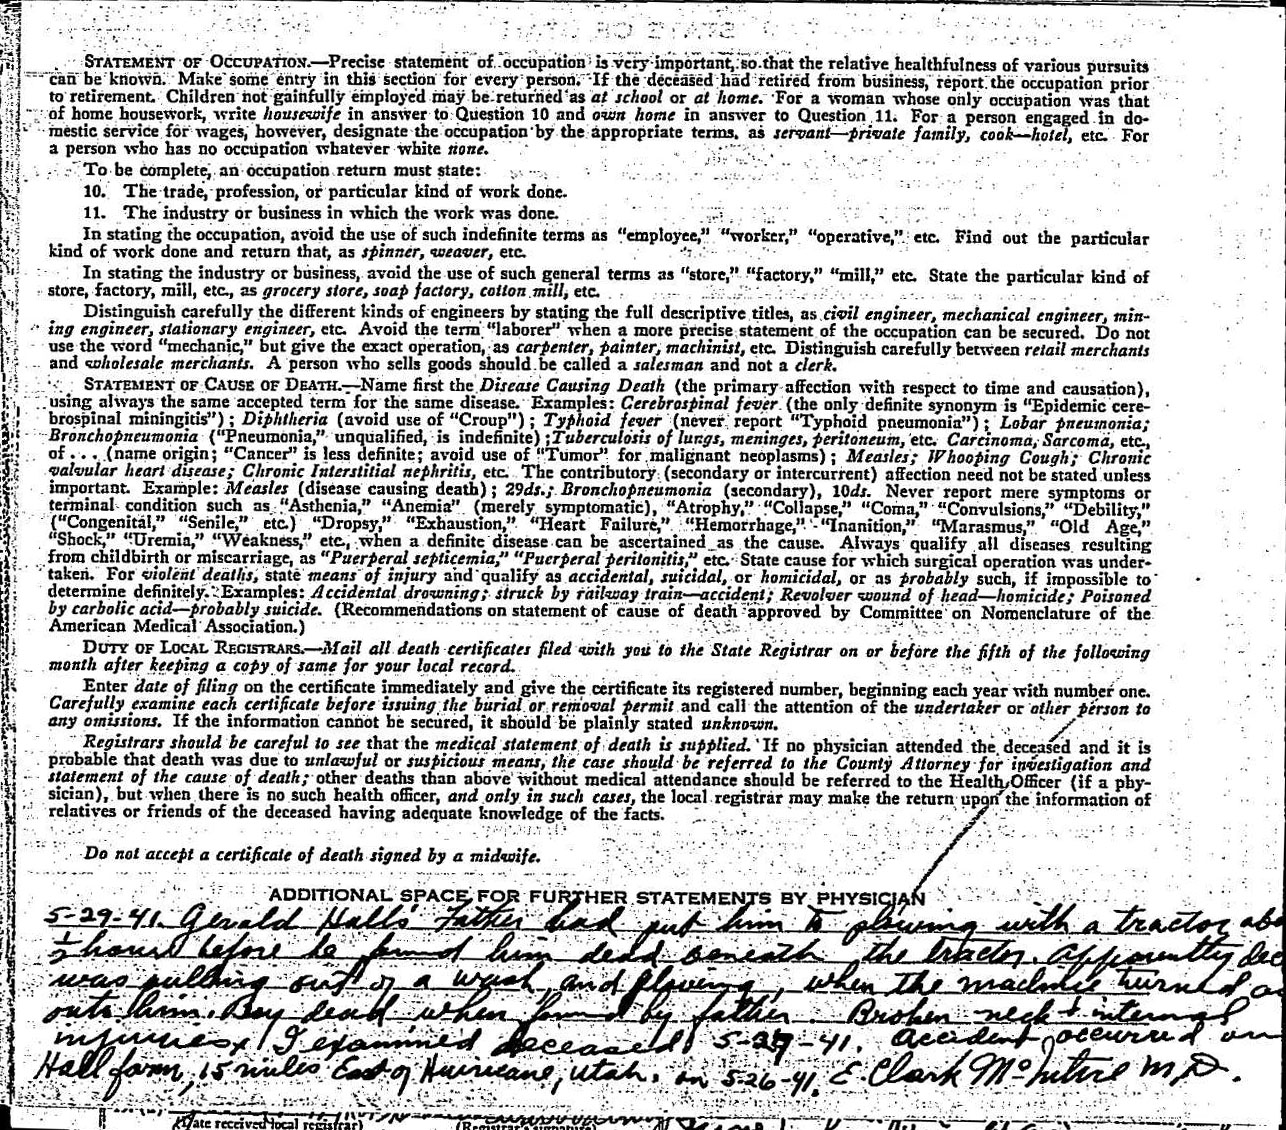 STATEMENT OF OCCUPATION.—Precise statement of occupation is very important, so that the relative healthfulness of various pursuits
can be known. Make some entry in this section for every person. If the deceased had retired from business, report the occupation prior
to retirement. Children not gainfully employed may be returned as at school or at home. For a woman whose only occupation was that
of home housework, write housewife in answer to Question 10 and own home in answer to Question 11. For a person engaged in do-
mestic service for wages, however, designate the occupation by the appropriate terms, as servant—private family, cook—hotel, etc. For
a person who has no occupation whatever white none.
To be complete, an occupation return must state:
10. The trade, profession, or particular kind of work done.
11. The industry or business in which the work was done.
In stating the occupation, avoid the use of such indefinite terms as "employee," "worker," "operative," etc. Find out the particular
kind of work done and return that, as spinner, weaver, etc.
In stating the industry or business, avoid the use of such general terms as "store," "factory," "mill," etc. State the particular kind of
store, factory, mill, etc., as grocery store, soap factory, cotton mill, etc.
Distinguish carefully the different kinds of engineers by stating the full descriptive titles, as civil engineer, mechanical engineer, min-
ing engineer, stationary engineer, etc. Avoid the term "laborer" when a more precise statement of the occupation can be secured. Do not
use the word "mechanic," but give the exact operation, as carpenter, painter, machinist, etc. Distinguish carefully between retail merchants
and wholesale merchants. A person who sells goods should be called a salesman and not a clerk.
STATEMENT OF CAUSE OF DEATH.—Name first the Disease Causing Death (the primary affection with respect to time and causation),
using always the same accepted term for the same disease. Examples: Cerebrospinal fever (the only definite synonym is "Epidemic cere-
brospinal miningitis") ; Diphtheria (avoid use of "Croup") ; Typhoid fever (never report "Typhoid pneumonia") ; Lobar pneumonia;
Bronchopneumonia ("Pneumonia," unqualified, is indefinite) ;Tuberculosis of lungs, meninges, peritoneum, etc. Carcinoma, Sarcoma, etc.,
of . . . (name origin; "Cancer" is less definite; avoid use of "Tumor" for malignant neoplasms) ; Measles; Whooping Cough; Chronic
valvular heart disease; Chronic Interstitial nephritis, etc. The contributory (secondary or intercurrent) affection need not be stated unless
important. Example: Measles (disease causing death) ; 29ds.; Bronchopneumonia (secondary), 10ds. Never report mere symptoms or
terminal condition such as "Asthenia," "Anemia" (merely symptomatic), "Atrophy," "Collapse," "Coma," "Convulsions," "Debility,"
("Congenital," "Senile," etc.) "Dropsy," "Exhaustion," "Heart Failure," "Hemorrhage," "Inanition," "Marasmus," "Old Age,"
"Shock," "Uremia," "Weakness," etc., when a definite disease can be ascertained as the cause. Always qualify all diseases resulting
from childbirth or miscarriage, as "Puerperal septicemia," "Puerperal peritonitis," etc. State cause for which surgical operation was under-
taken. For violent deaths, state means of injury and qualify as accidental, suicidal, or homicidal, or as probably such, if impossible to
determine definitely. Examples: Accidental drowning; struck by railway train—accident; Revolver wound of head—homicide; Poisoned
by carbolic acid—probably suicide. (Recommendations on statement of cause of death approved by Committee on Nomenclature of the
American Medical Association.)
DUTY OF LOCAL REGISTRARS.—Mail all death certificates filed with you to the State Registrar on or before the fifth of the following
month after keeping a copy of same for your local record.
Enter date of filing on the certificate immediately and give the certificate its registered number, beginning each year with number one.
Carefully examine each certificate before issuing the burial or removal permit and call the attention of the undertaker or other person to
any omissions. If the information cannot be secured, it should be plainly stated unknown.
Registrars should be careful to see that the medical statement of death is supplied. If no physician attended the deceased and it is
probable that death was due to unlawful or suspicious means, the case should be referred to the County Attorney for investigation and
statement of the cause of death; other deaths than above without medical attendance should be referred to the Health Officer (if a phy-
sician), but when there is no such health officer, and only in such cases, the local registrar may make the return upon the information of
relatives or friends of the deceased having adequate knowledge of the facts.
Do not accept a certificate of death signed by a midwife.
ADDITIONAL SPACE FOR FURTHER STATEMENTS BY PHYSICIAN
5-29-41. Gerald Hall's Father had put him to plowing with a tractor
½ hour before he found him dead beneath the tractor. Apparently
was pulling out of a wash, and plowing, when the machine turned
onto him. Boy dead when found by father. Broken neck & internal
injuries. I examined deceased 5-27-41. Accident occurred on
Hall farm, 15 miles East of Hurricane, Utah. on 5-26-41. E. Clark McIntire M.D.
(Date received local registrar)